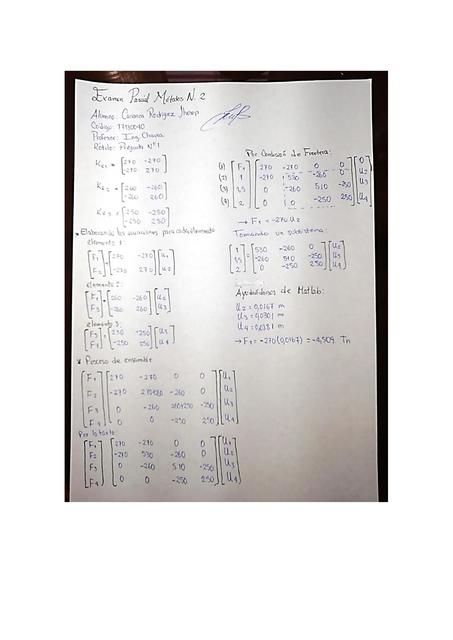 Examen Parcial Métodos N. 2
Alumno: Carranza Rodriguez Jhosep
Código:
Profesor: Ing. Chavea
Rótulo: Pregunta N°1
Ke1 = [270 -270
-270 270]
Ke2 = [260 -260
-260 260]
Ke3 = [250 -250
-250 250]
* Elaborando las ecuaciones para cada elemento
elemento 1:
[F1 F2] = [270 -270
-270 270] [U1 U2]
elemento 2:
[F2 F3] = [260 -260
-260 260] [U2 U3]
elemento 3:
[F3 F4] = [250 -250
-250 250] [U3 U4]
* Proceso de ensamble
F1 270 -270 0 0 U1
F2 -270 270+260 -260 0 U2
F3 0 -260 260+250 -250 U3
F4 0 0 -250 250 U4
Por lo tanto:
F1 270 -270 0 0 U1
F2 -270 530 -260 0 U2
F3 0 -260 510 -250 U3
F4 0 0 -250 250 U4
Por Condición de Frontera:
(1) F1 270 -270 0 0 0
(2) 1 -270 530 -260 0 U2
(3) 1,5 0 -260 510 -250 U3
(4) 2 0 0 -250 250 U4
→ F1 = -270 U2
Tomando un subsistema:
1 530 -260 0 U2
1,5 = -260 510 -250 U3
2 0 -250 250 U4
Ayudandonos de Matlab:
U2 = 0,0167 m
U3 = 0,0301 m
U4 = 0,0381 m
→ F1 = -270(0,0167) = -4,509 Tn